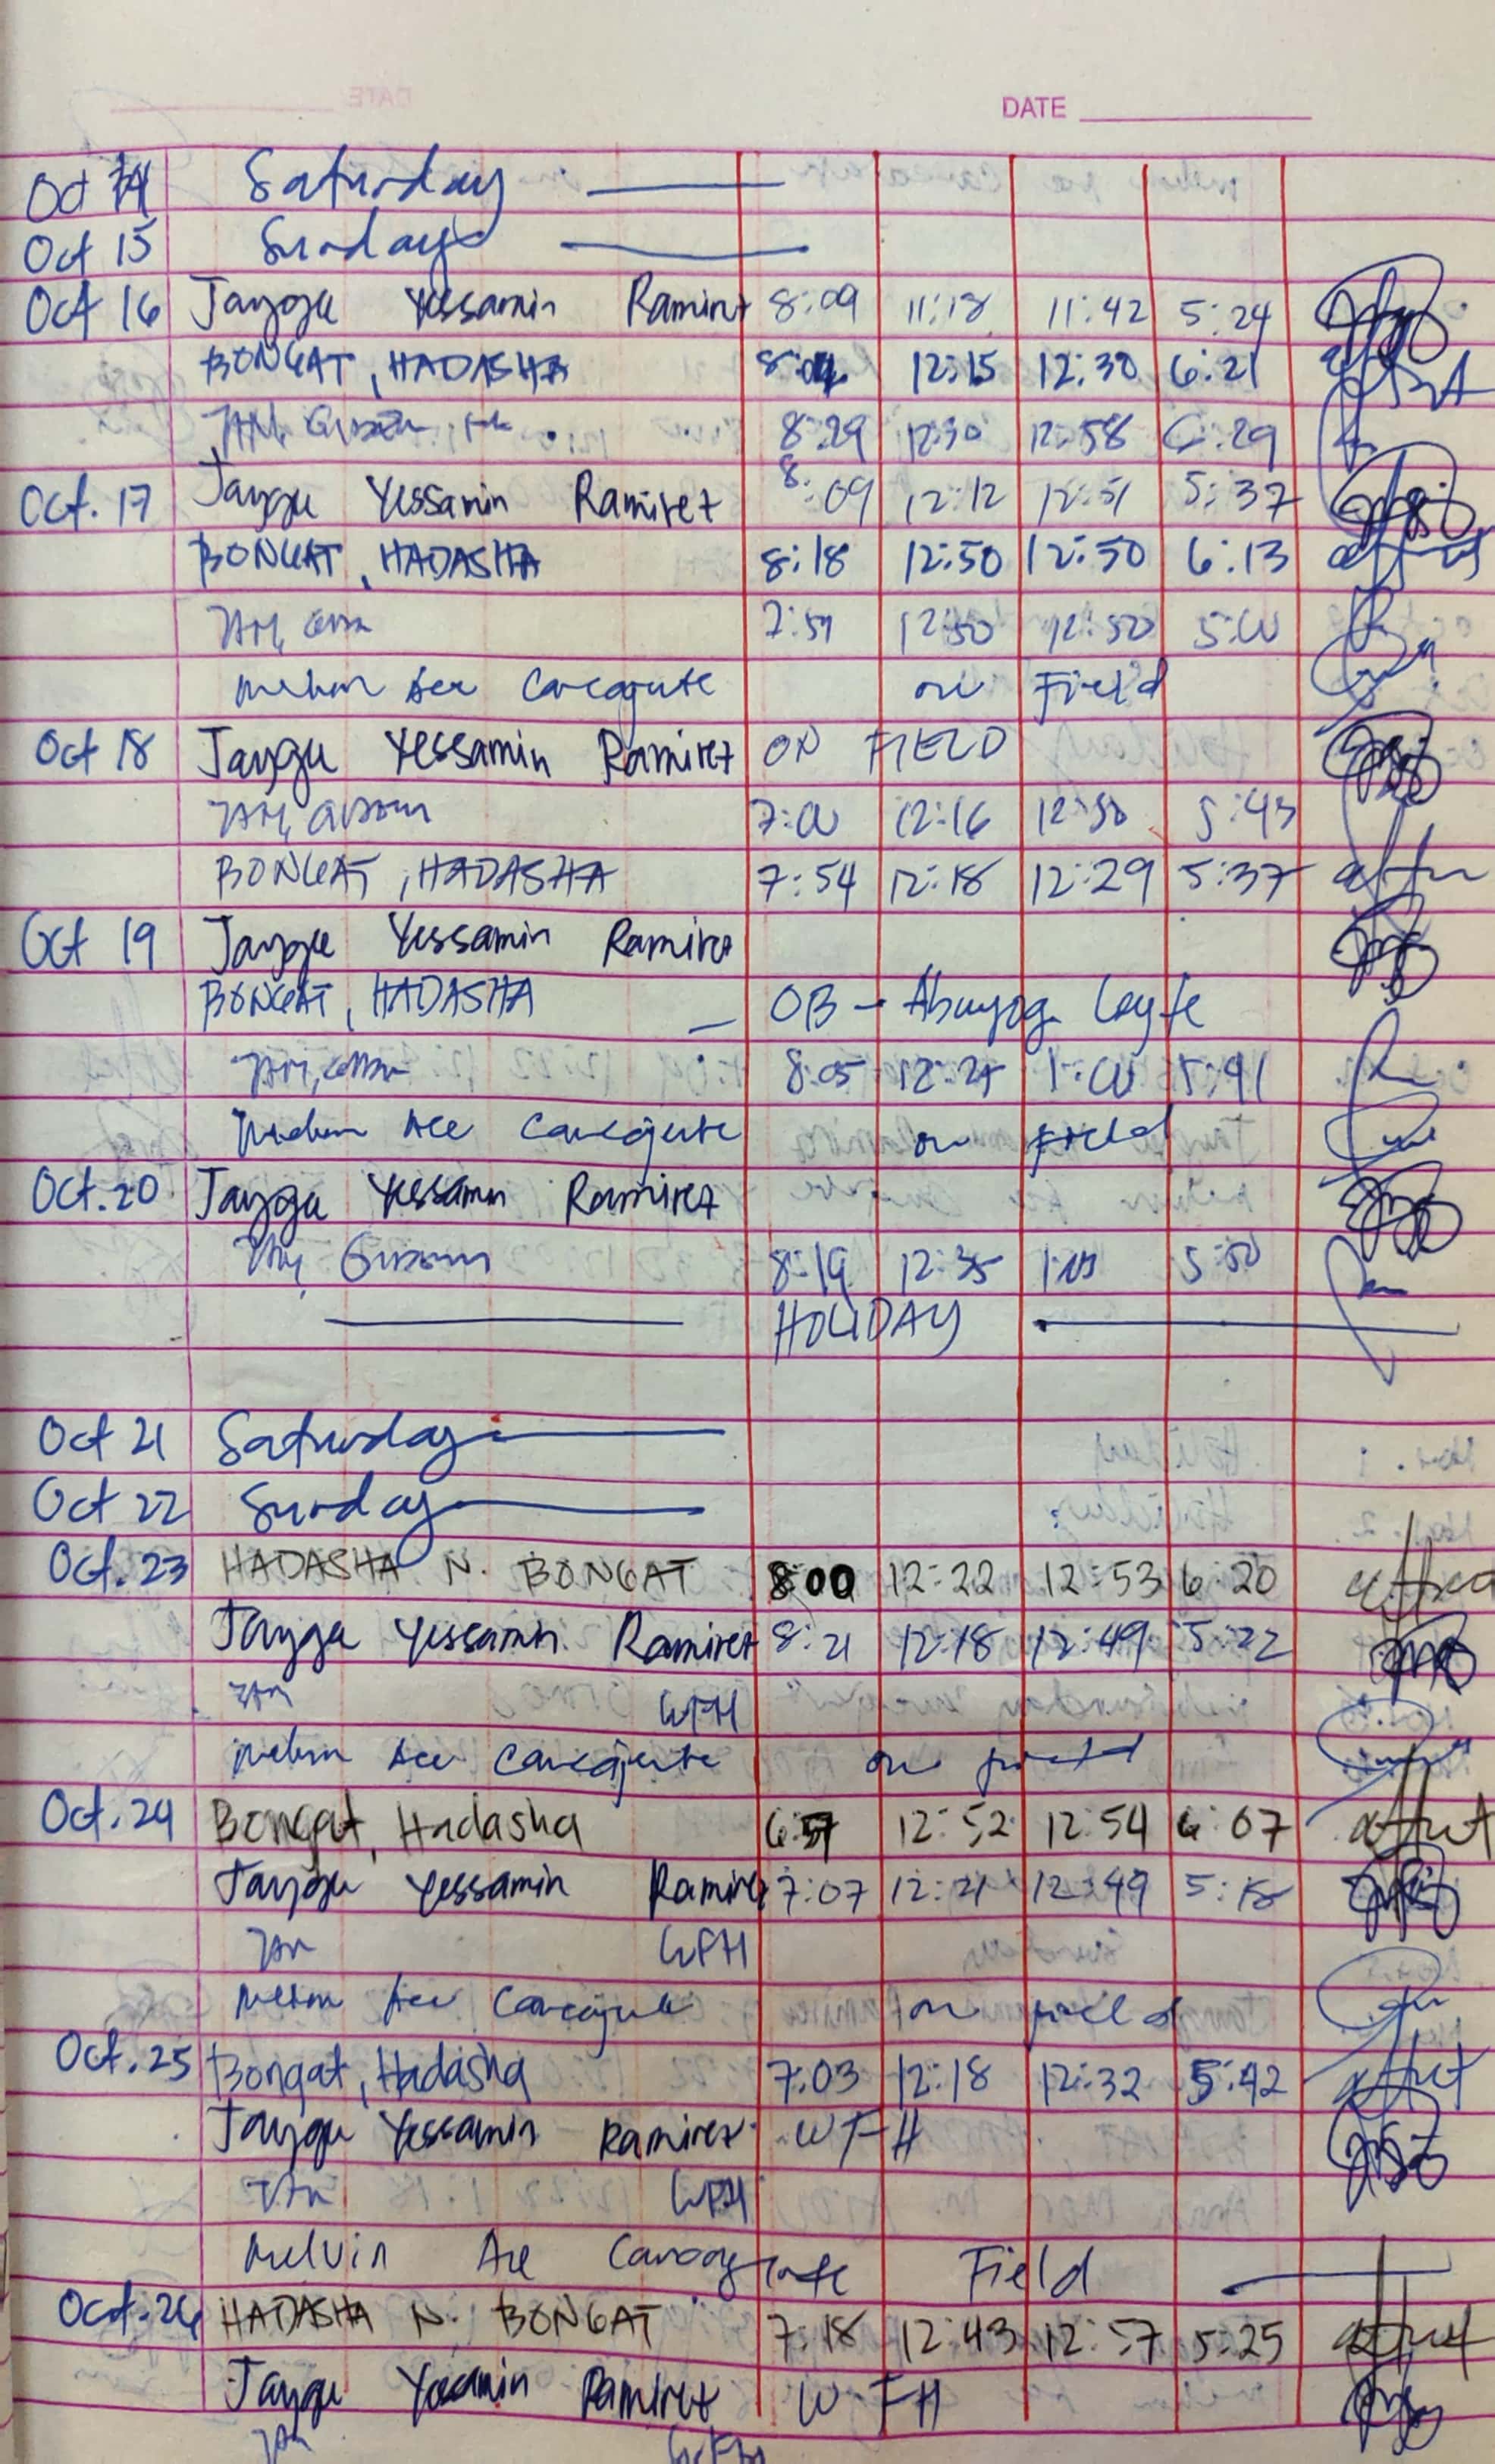 DATE
Oct 14 Saturday
Oct 15 Sunday
Oct 16 Jaygu Yessamin Ramirez 8:09 11:18 11:42 5:24
BONGAT, HADASHA 8:04 12:15 12:30 6:21
8:29 12:30 12:58 6:29
Oct. 17 Jaygu Yessamin Ramirez 8:09 12:12 12:51 5:37
BONGAT, HADASHA 8:18 12:50 12:50 6:13
7:51 12:50 12:50 5:00
Melvin Ace on Field
Oct 18 Jaygu Yessamin Ramirez ON FIELD
7:00 12:16 12:30 5:43
BONGAT, HADASHA 7:54 12:18 12:29 5:37
Oct 19 Jaygu Yessamin Ramirez
BONGAT, HADASHA OB - Abuyog Leyte
8:05 12:27 1:00 5:41
Melvin Ace on Field
Oct. 20 Jaygu Yessamin Ramirez
8:19 12:35 5:50
HOLIDAY
Oct 21 Saturday
Oct 22 Sunday
Oct. 23 HADASHA N. BONGAT 8:00 12:22 12:53 6:20
Jaygu Yessamin Ramirez 8:21 12:18 12:49 5:22
WFH
Melvin Ace on field
Oct. 24 Bongat, Hadasha 6:57 12:52 12:54 6:07
Jaygu Yessamin Ramirez 7:07 12:21 12:49 5:18
WFH
Melvin Ace on field
Oct. 25 Bongat, Hadasha 7:03 12:18 12:32 5:42
Jaygu Yessamin Ramirez WFH
WFH
Melvin Ace Field
Oct. 26 HADASHA N. BONGAT 7:18 12:43 12:57 5:25
Jaygu Yessamin Ramirez WFH